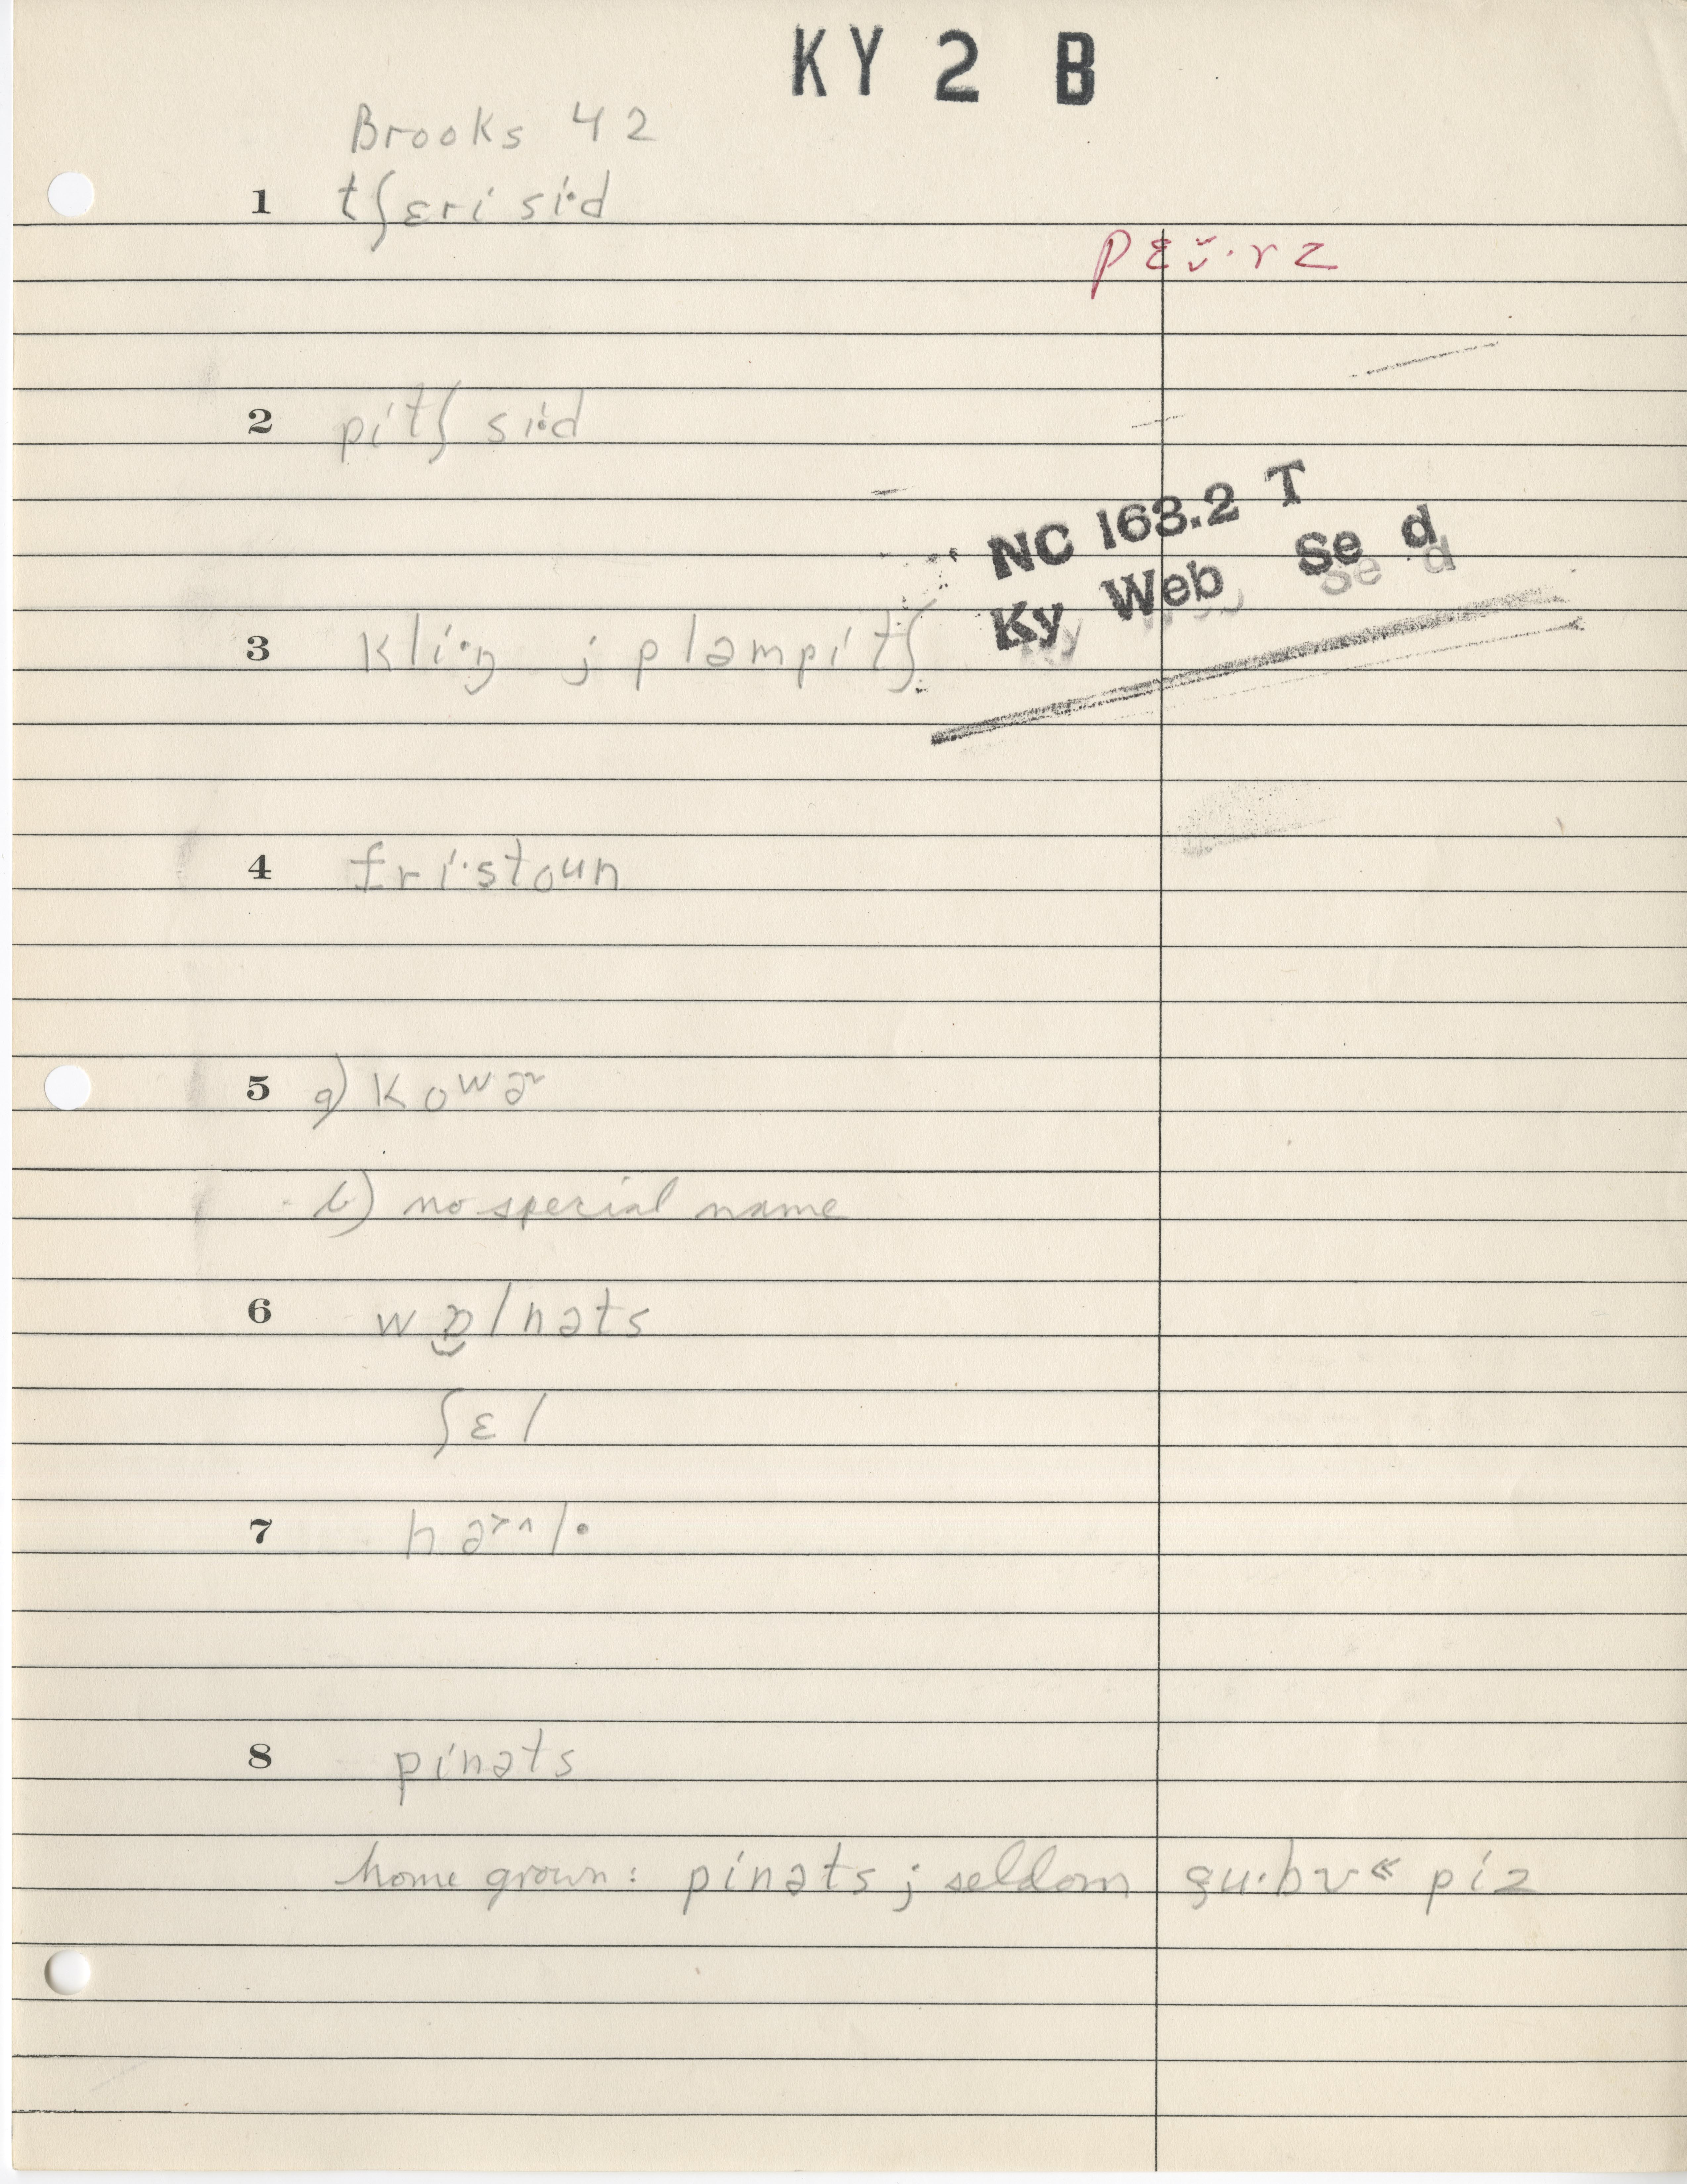 KY 2 B
Brooks 42
1 tʃɛri si·d
pɛ̌ˇ·rz
2 pitʃ si·d
NC 163.2 T
Ky Web Se d
3 kli·ŋ ; pləmpitʃ
4 fri·stoun
5 a) koʷɚ
b) no special name
6 wɒ̮lnəts
ʃɛl
7
8 pinəts
home grown: pinəts ; seldom gu·bɚ piz